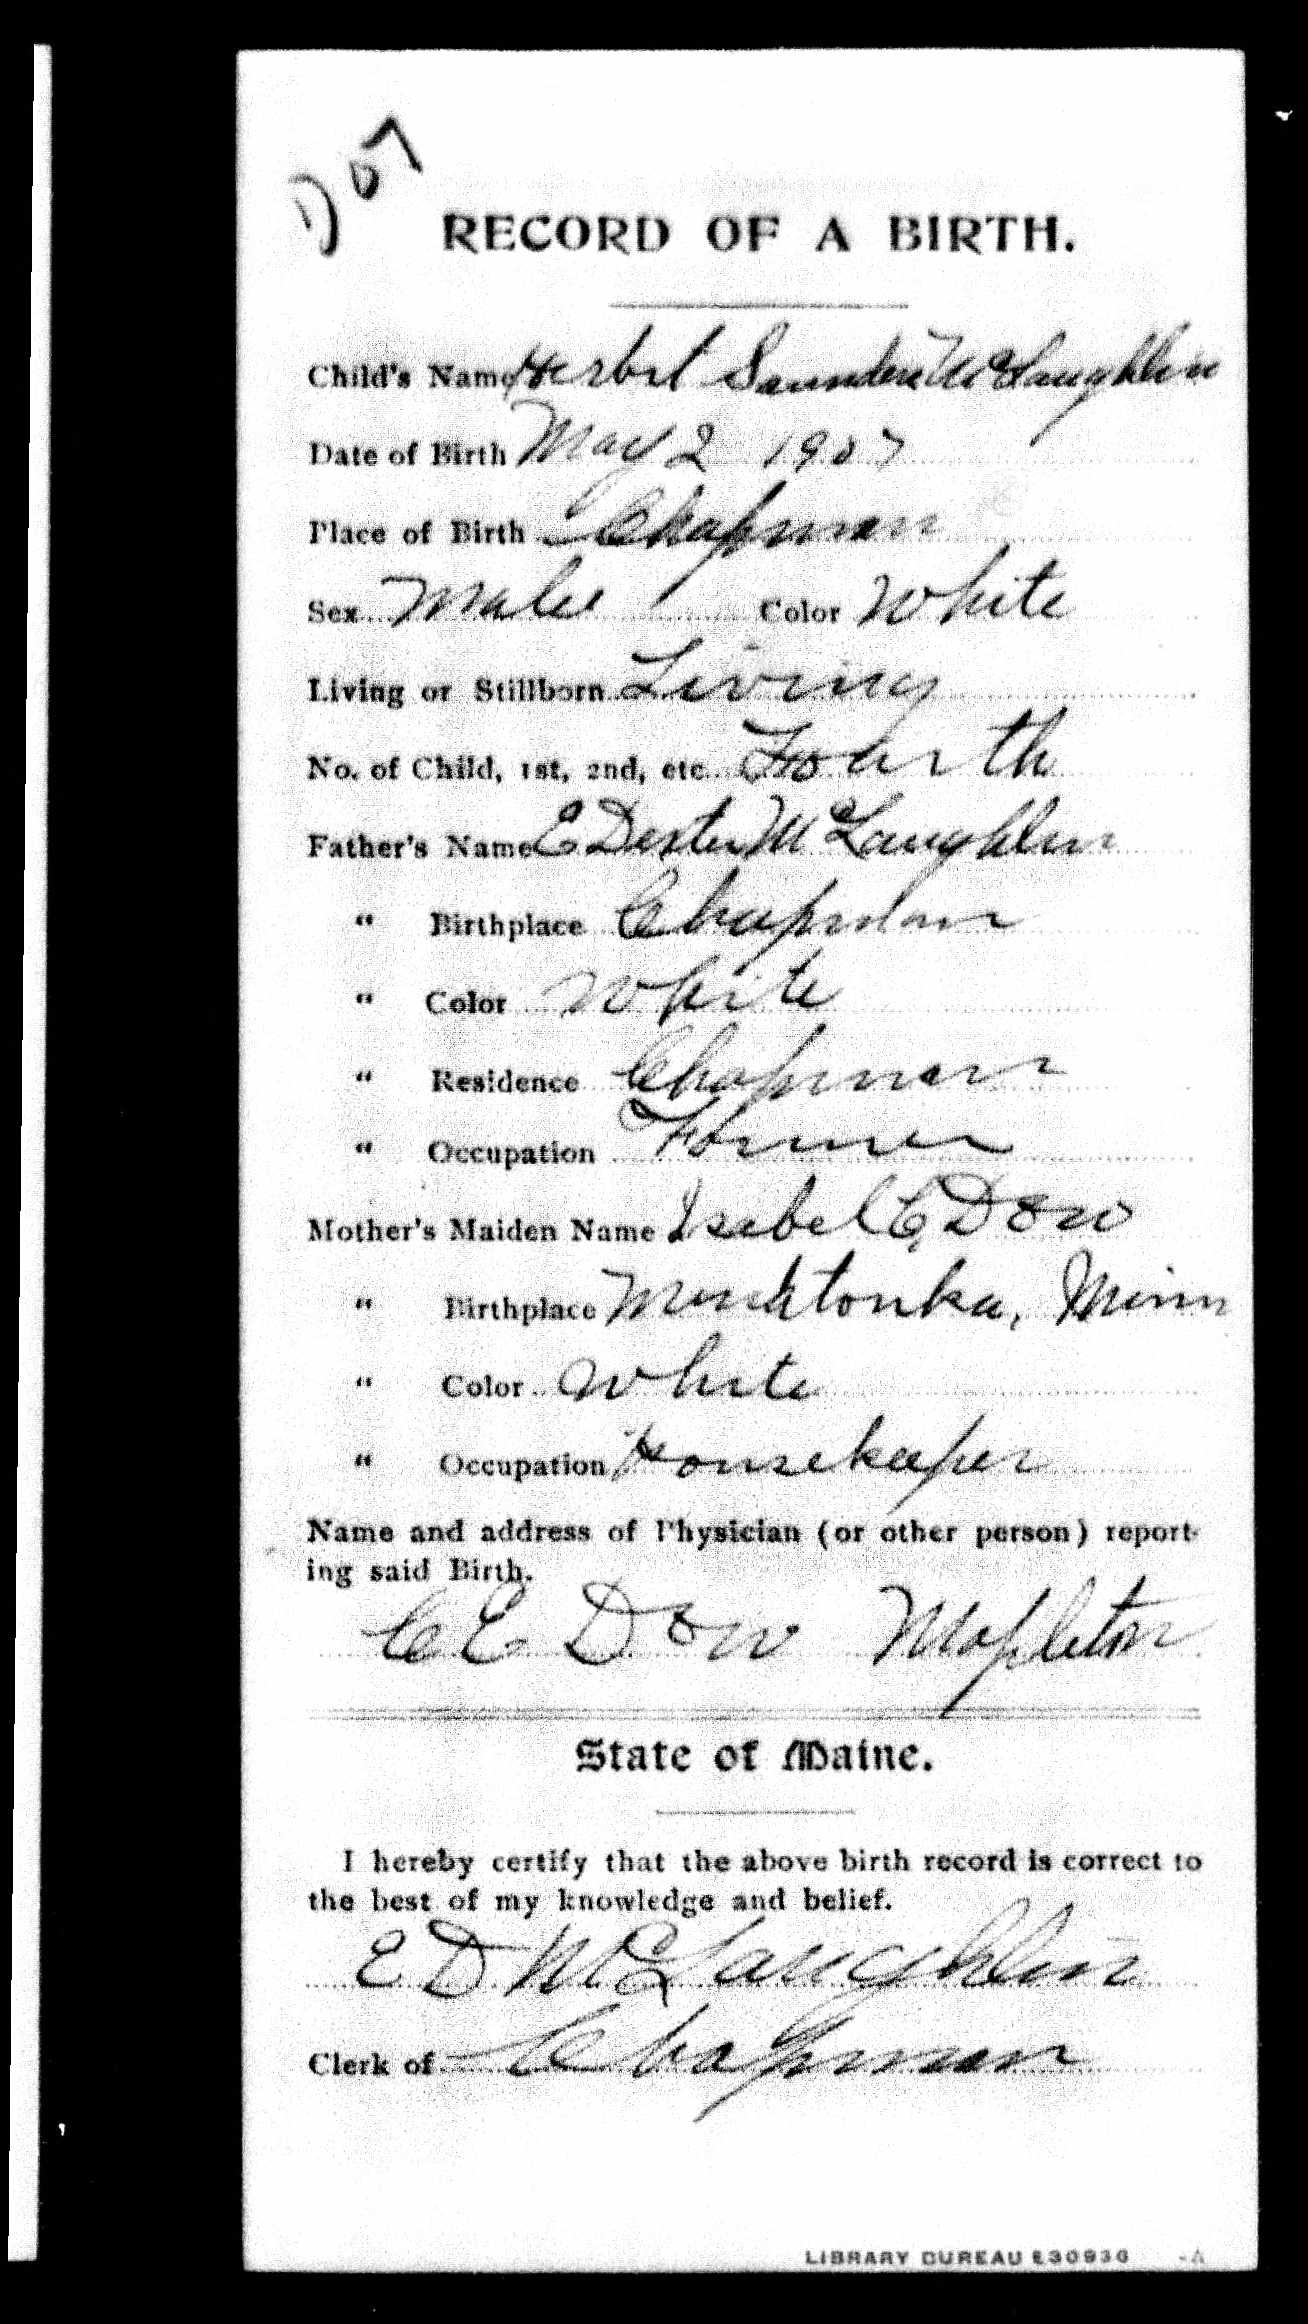 RECORD OF A BIRTH.
Child's Name Herbert Saunders McLaughlin
Date of Birth May 2 1907
Place of Birth Chapman
Sex Male Color White
Living or Stillborn Living
No. of Child, 1st, 2nd, etc. Fourth
Father's Name E Dexter McLaughlin
" Birthplace Chapman
" Color White
" Residence Chapman
" Occupation Farmer
Mother's Maiden Name Isabel C. Dow
" Birthplace Minntonka, Minn
" Color White
" Occupation Housekeeper
Name and address of Physician (or other person) report-
ing said Birth.
C E Dow Mapleton
State of Maine.
I hereby certify that the above birth record is correct to
the best of my knowledge and belief.
E D McLaughlin
Clerk of Chapman
LIBRARY BUREAU E30936 -A